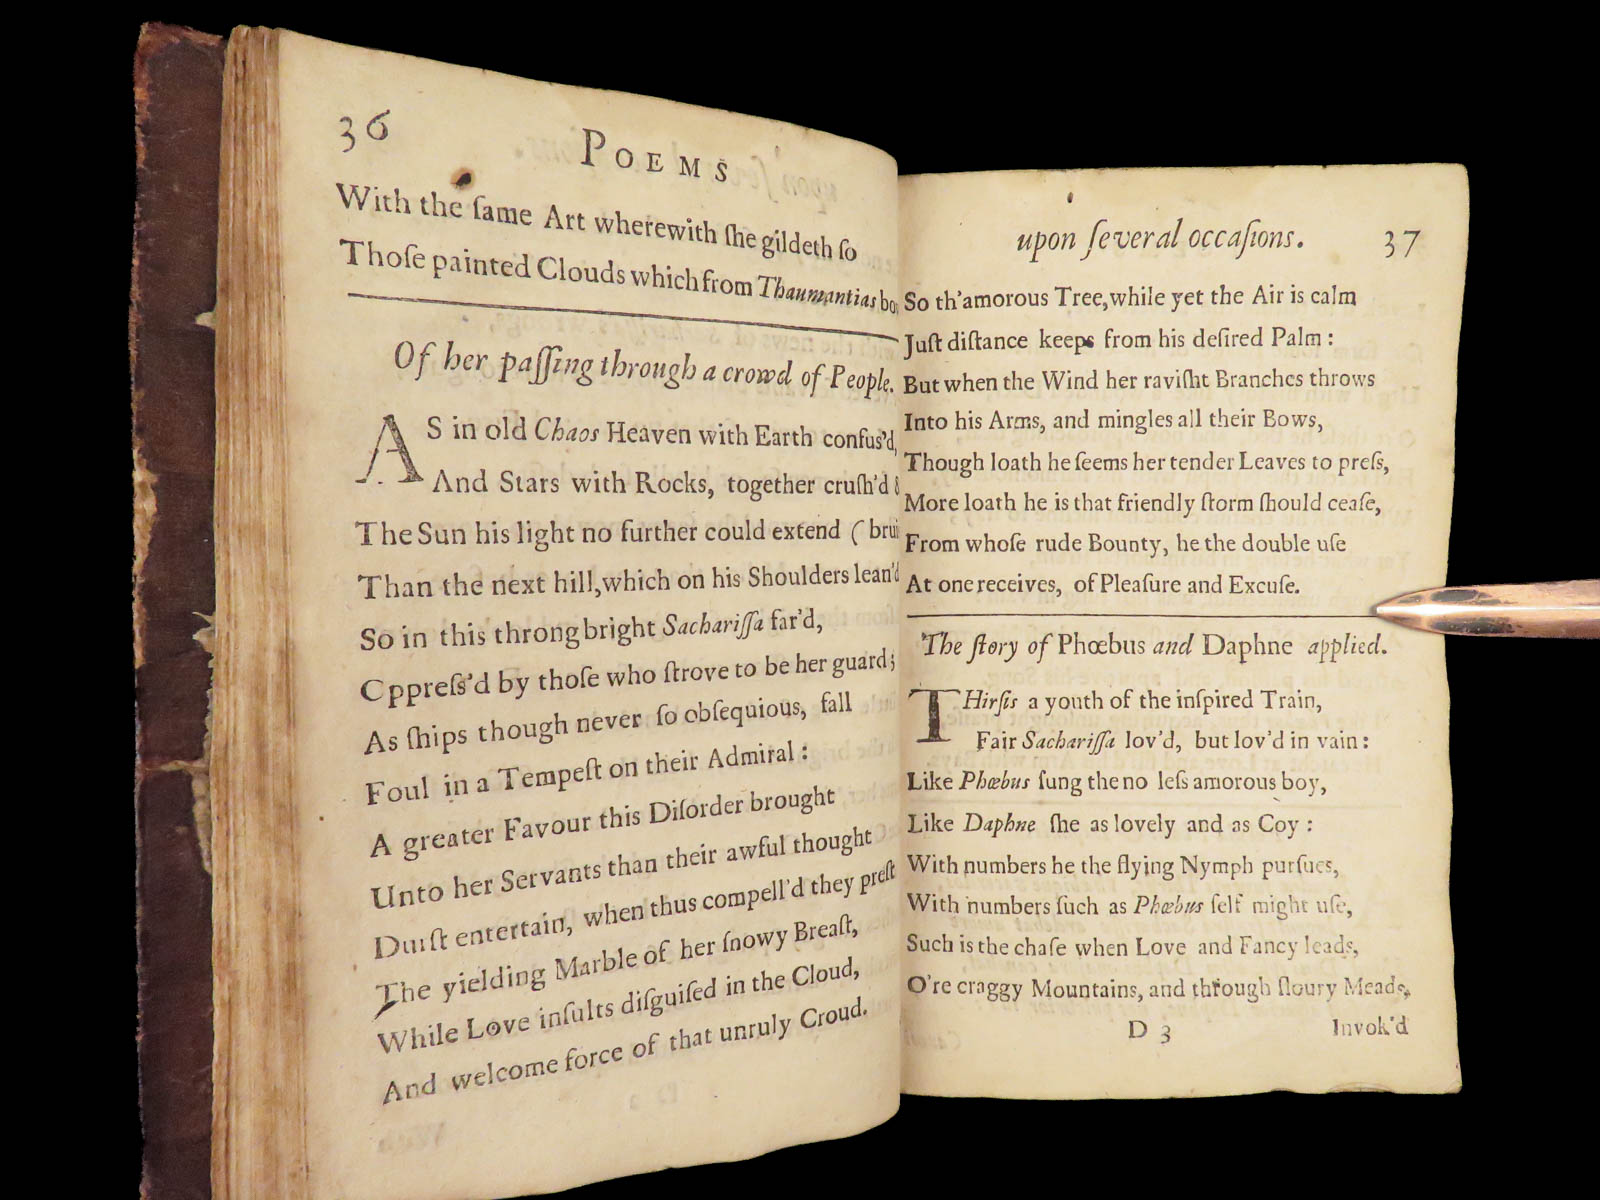 36
POEMS
With the ſame Art wherewith ſhe gildeth ſo
Thoſe painted Clouds which from Thaumantias
Of her paſſing through a crowd of People.
AS in old Chaos Heaven with Earth confus'd,
And Stars with Rocks, together cruſh'd
The Sun his light no further could extend (
Than the next hill, which on his Shoulders lean'd
So in this throng bright Sachariſſa far'd,
Cppreſs'd by thoſe who ſtrove to be her guard;
As ſhips though never ſo obſequious, fall
Foul in a Tempeſt on their Admiral:
A greater Favour this Diſorder brought
Unto her Servants than their awful thought
Durſt entertain, when thus compell'd they preſt
The yielding Marble of her ſnowy Breaſt,
While Love inſults diſguiſed in the Cloud,
And welcome force of that unruly Croud.
upon ſeveral occaſions. 37
So th'amorous Tree, while yet the Air is calm
Juſt diſtance keeps from his deſired Palm:
But when the Wind her raviſht Branches throws
Into his Arms, and mingles all their Bows,
Though loath he ſeems her tender Leaves to preſs,
More loath he is that friendly ſtorm ſhould ceaſe,
From whoſe rude Bounty, he the double uſe
At one receives, of Pleaſure and Excuſe.
The ſtory of Phœbus and Daphne applied.
THirſis a youth of the inſpired Train,
Fair Sachariſſa lov'd, but lov'd in vain:
Like Phœbus ſung the no leſs amorous boy,
Like Daphne ſhe as lovely and as Coy:
With numbers he the flying Nymph purſues,
With numbers ſuch as Phœbus ſelf might uſe,
Such is the chaſe when Love and Fancy leads,
O're craggy Mountains, and through floury Meads,
D 3 Invok'd